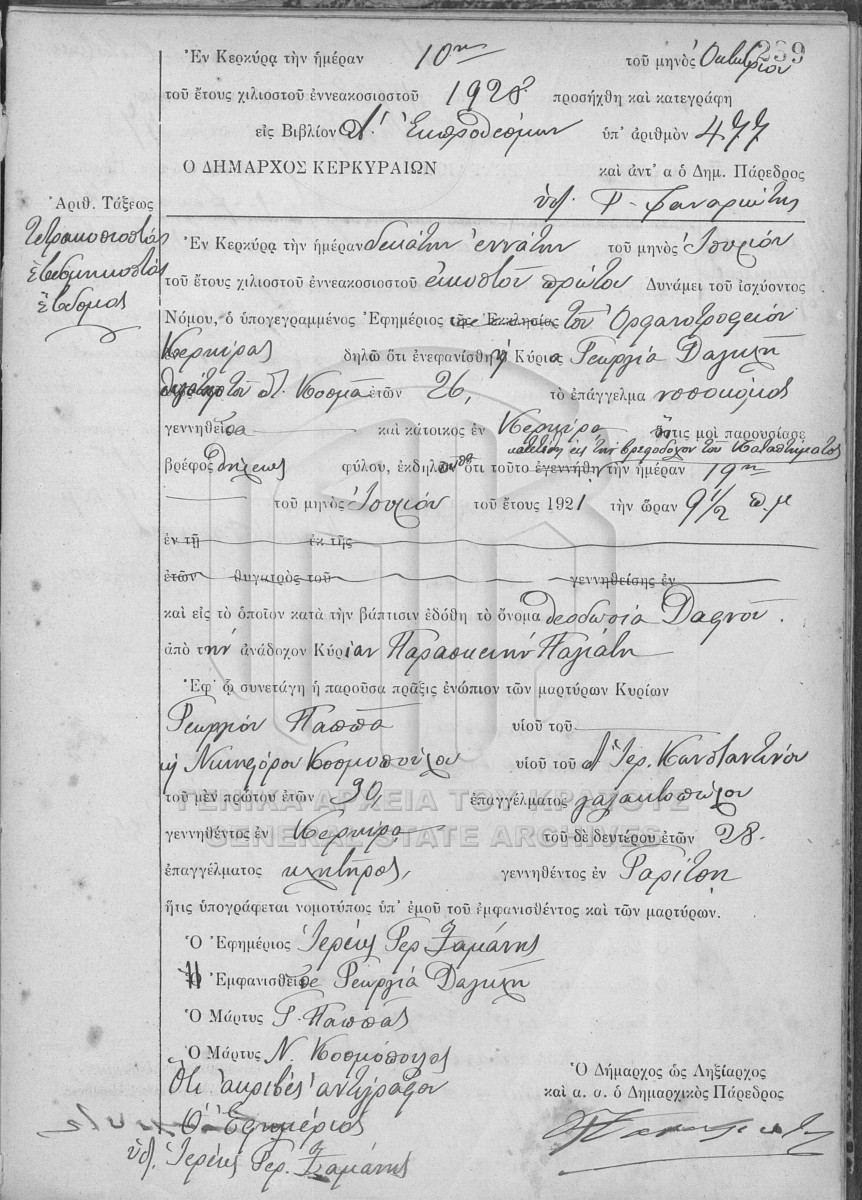 239
Ἐν Κερκύρᾳ τὴν ἡμέραν 10ην τοῦ μηνὸς Ὀκτωβρίου
τοῦ ἔτους χιλιοστοῦ ἐννεακοσιοστοῦ 1928 προσήχθη καὶ κατεγράφη
εἰς Βιβλίον Α'. Ἐκπροθέσμων ὑπ' ἀριθμὸν 477
Ο ΔΗΜΑΡΧΟΣ ΚΕΡΚΥΡΑΙΩΝ καὶ ἀντ' α ὁ Δημ. Πάρεδρος
Ἀριθ. Τάξεως
Τετρακοσιοστὸς
ἑβδομηκοστὸς
ἕβδομος
Ἐν Κερκύρᾳ τὴν ἡμέραν δεκάτην ἐννάτην τοῦ μηνὸς Ἰουνίου
τοῦ ἔτους χιλιοστοῦ ἐννεακοσιοστοῦ εἰκοστοῦ πρώτου Δυνάμει τοῦ ἰσχύοντος
Νόμου, ὁ ὑπογεγραμμένος Ἐφημέριος τῆς Ἐκκλησίας τοῦ Ὀρφανοτροφείου
Κερκύρας δηλῶ ὅτι ἐνεφανίσθη ἡ Κύρια Γεωργία
Κοσμᾶ ἐτῶν 26, τὸ ἐπάγγελμα νοσοκόμος
γεννηθεῖσα καὶ κάτοικος ἐν Κερκύρᾳ ἥτις μοὶ παρουσίασε
κατετέθη εἰς τὴν βρεφοδόχον τοῦ Καταστήματος
βρέφος θήλεως φύλου, ἐκδηλ ὅτι τοῦτο ἐγεννήθη τὴν ἡμέραν 19ην
τοῦ μηνὸς Ἰουνίου τοῦ ἔτους 1921 τὴν ὥραν 9 1/2 π.μ
ἐν τῇ ἐκ τῆς
ἐτῶν θυγατρὸς τοῦ γεννηθείσης ἐν
καὶ εἰς τὸ ὁποῖον κατὰ τὴν βάπτισιν ἐδόθη τὸ ὄνομα Θεοδωσία Δαφνοῦ.
ἀπὸ τὴν ἀνάδοχον Κύρίαν Παρασκευὴν Παλιάτη
Ἐφ' ᾧ συνετάγη ἡ παροῦσα πρᾶξις ἐνώπιον τῶν μαρτύρων Κυρίων
Γεωργίου Παππᾶ υἱοῦ τοῦ
κ Νικηφόρου Κοσμοπούλου υἱοῦ τοῦ Ἱερ. Κωνσταντίνου
τοῦ μὲν πρώτου ἐτῶν 30, ἐπαγγέλματος γαλακτοπώλου
γεννηθέντος ἐν Κερκύρᾳ τοῦ δὲ δευτέρου ἐτῶν 28.
ἐπαγγέλματος κλητῆρος, γεννηθέντος ἐν Γαρίτσῃ
ἥτις ὑπογράφεται νομοτύπως ὑπ' ἐμοῦ τοῦ ἐμφανισθέντος καὶ τῶν μαρτύρων.
Ὁ Ἐφημέριος Ἱερεὺς Γερ Ζαμάνης
Ἡ Ἐμφανισθεῖσα Γεωργία
Ὁ Μάρτυς Γ. Παππᾶς
Ὁ Μάρτυς Ν. Κοσμόπουλος
Ὅτι ἀκριβὲς ἀντίγραφον
Ὁ Ἐφημέριος
ὑπ. Ἱερεὺς Γερ. Ζαμάνης
Ὁ Δήμαρχος ὡς Ληξίαρχος
καὶ α. α. ὁ Δημαρχικὸς Πάρεδρος
ΓΕΝΙΚΑ ΑΡΧΕΙΑ ΤΟΥ ΚΡΑΤΟΥΣ
GENERAL STATE ARCHIVES